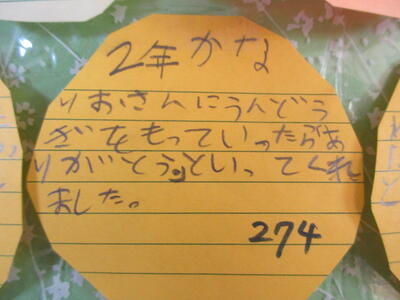 2年 かな
りおさんにうんどう
ぎをもっていったら「あ
りがとう」といってくれ
ました。
274